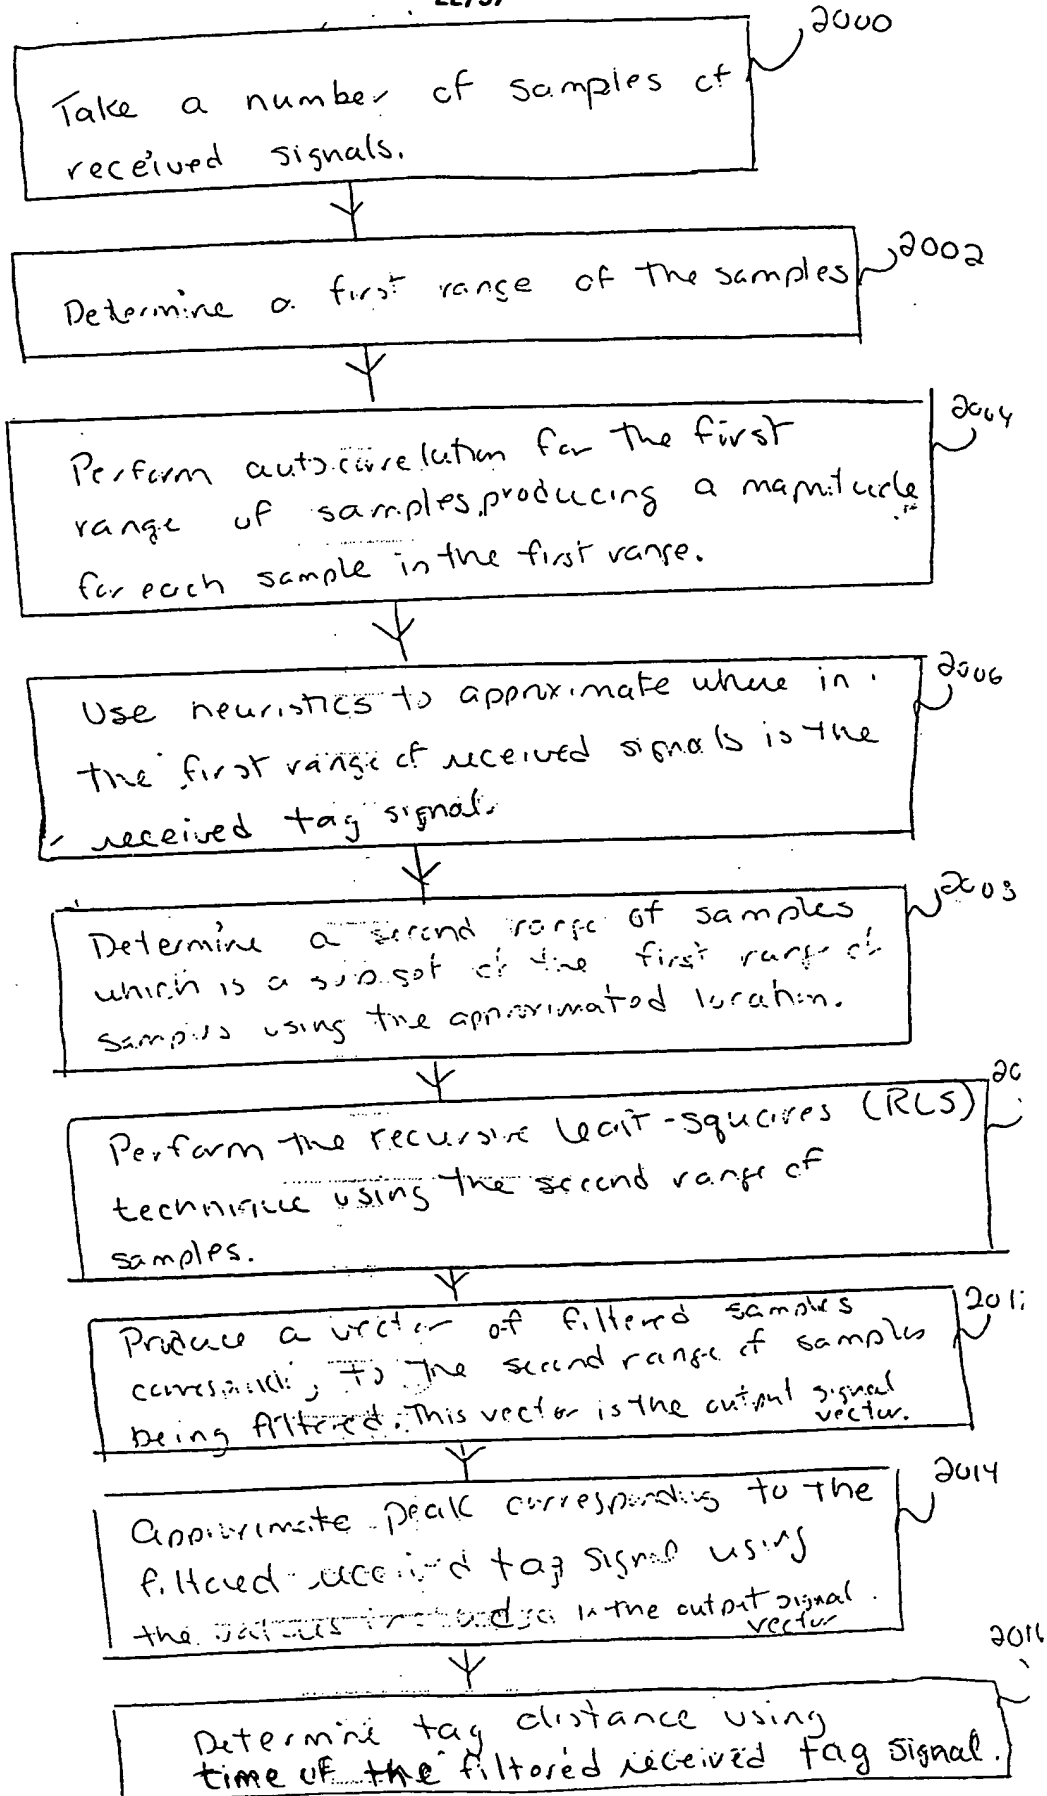 2000
Take a number of samples of
received signals.
2002
Determine a first range of the samples
2004
Perform autocorrelation for the first
range of samples, producing a magnitude
for each sample in the first range.
2006
Use heuristics to approximate where in
the first range of received signals is the
received tag signal.
2008
Determine a second range of samples
which is a subset of the first range of
samples using the approximated location.
20
Perform the recursive least-squares (RLS)
technique using the second range of
samples.
201
Produce a vector of filtered samples
corresponding to the second range of samples
being filtered. This vector is the output signal
vector.
2014
Approximate peak corresponding to the
filtered received tag signal using
the values in the output signal
vector
2016
Determine tag distance using
time of the filtered received tag signal.